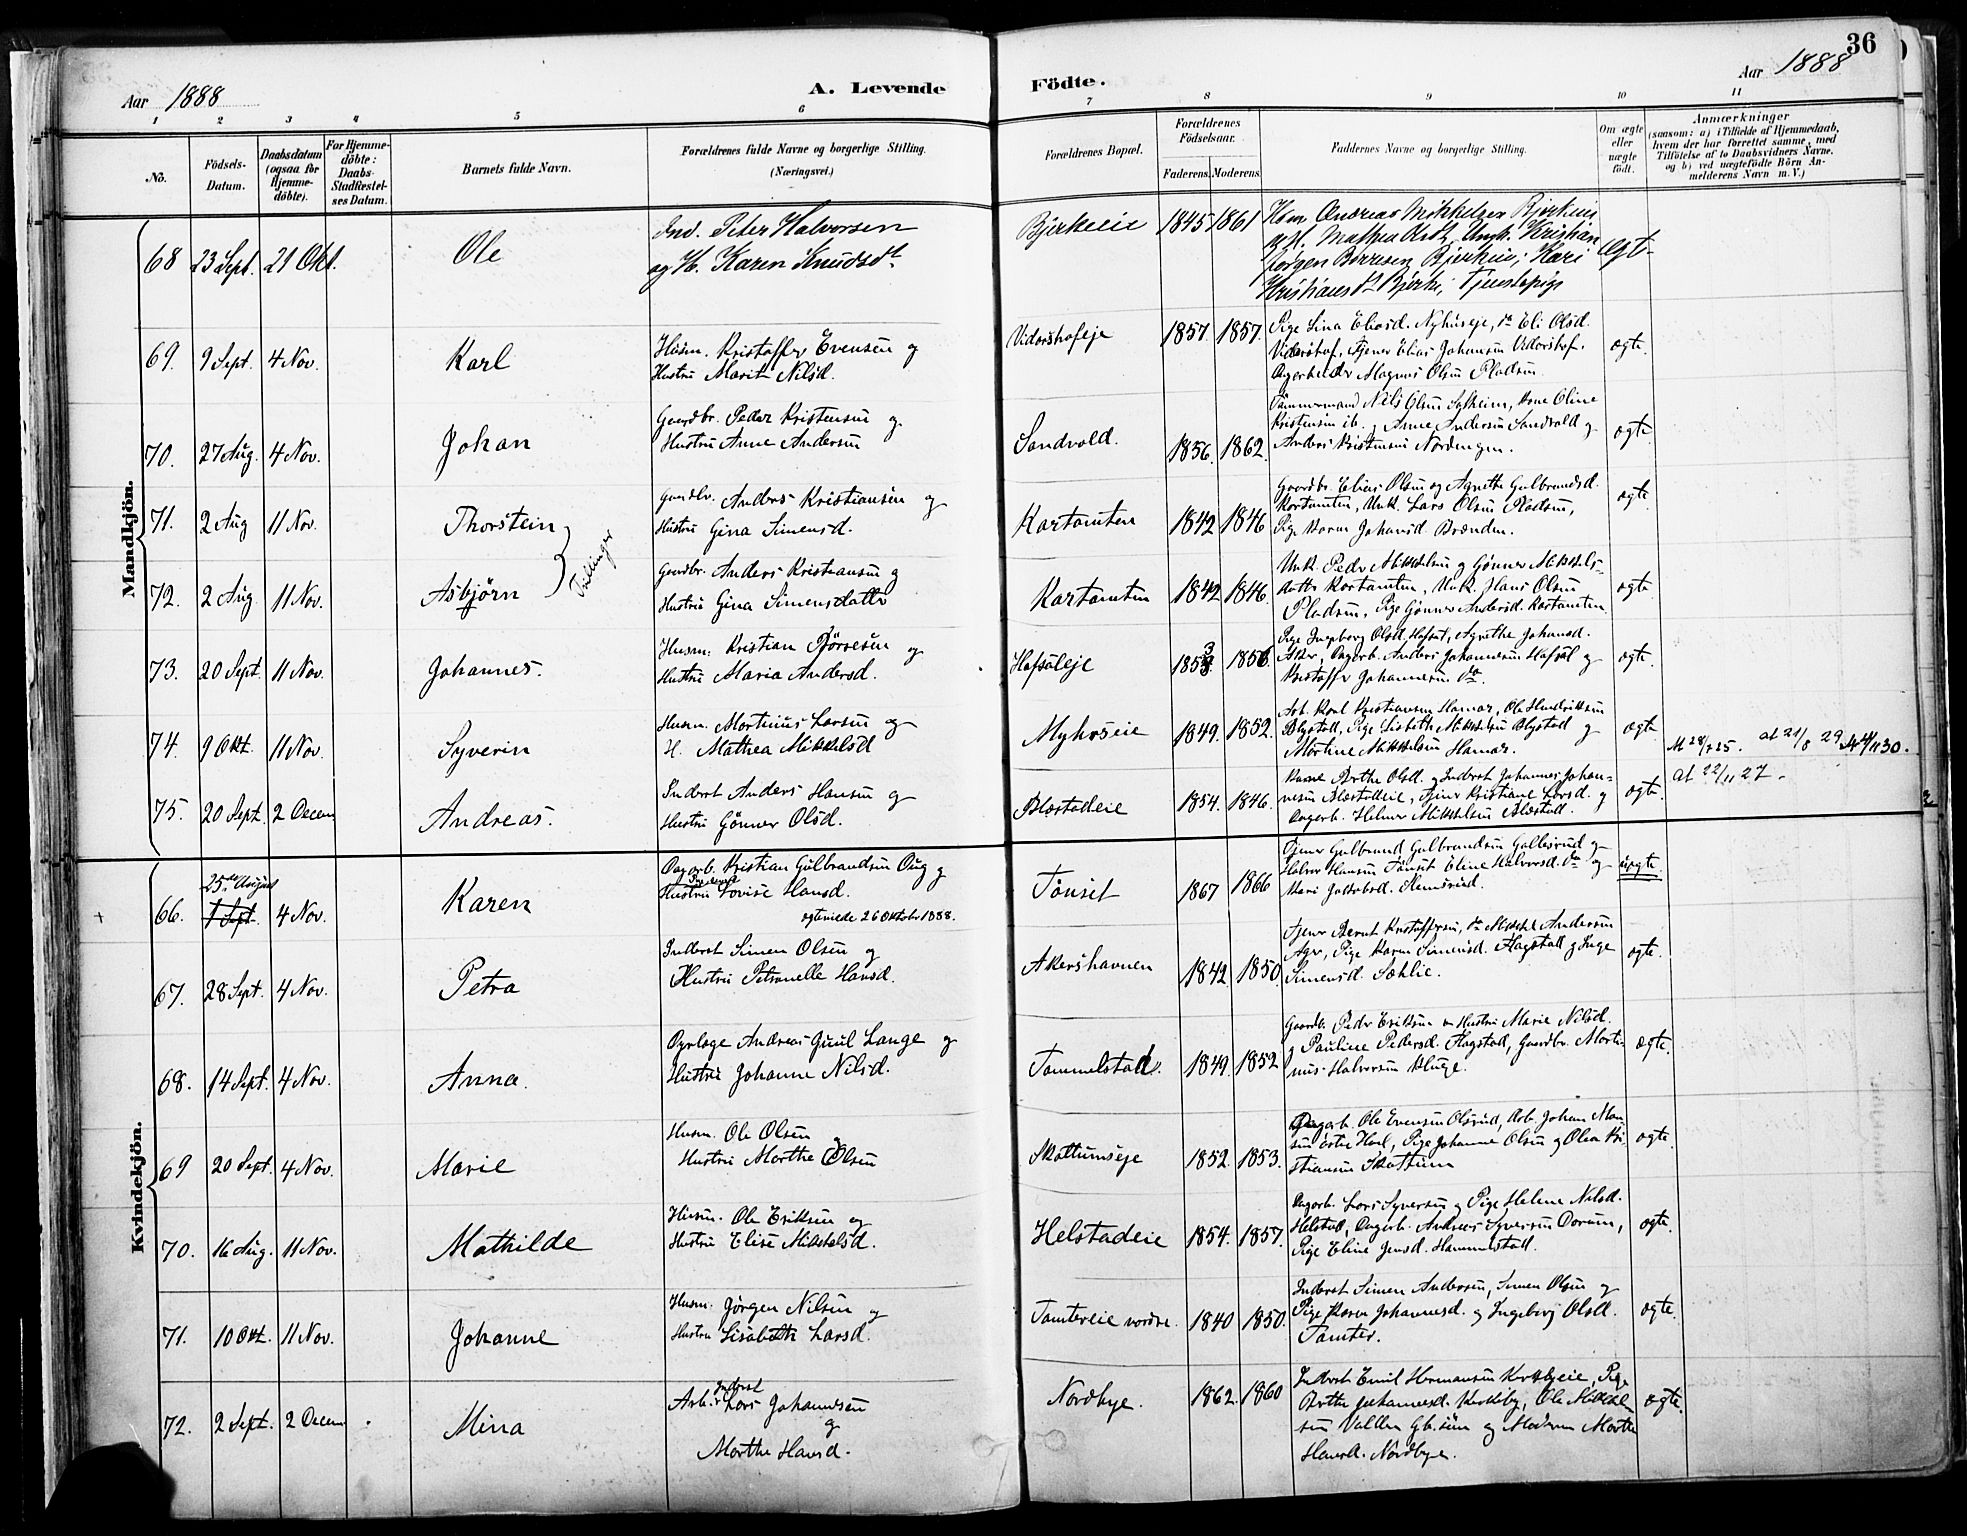 36
Aar 1888
A. Levende
Födte.
Aar 1888
1 2 3 4 5 6 7 8 9 10 11
No.
Födsels-
Datum.
Daabsdatum
(ogsaa for
Hjemme-
döbte).
For Hjemme-
döbte:
Daabs-
Stadfæstel-
ses Datum.
Barnets fulde Navn.
Forældrenes fulde Navne og borgerlige Stilling.
(Næringsvei.)
Forældrenes Bopæl.
Forældrenes
Födselsaar.
Faderens. Moderens.
Faddernes Navne og borgerlige Stilling.
Om ægte
eller
uægte
födt.
Anmærkninger
(saasom: a) i Tilfælde af Hjemmedaab,
hvem der har forrettet samme, med
Tilföielse af to Daabsvidners Navne.
og b) ved uægtefödte Börn An-
melderens Navn m. V.)
Mandkjön.
68 23 Sept. 21 Okt. Ole
Ind. Peter Halvorsen
og H. Karen Knudsdt.
Bjerkeeie 1845 1861
Andreas Mikkelsen
Kristian
Kari
ægte
69. 9 Sept. 4 Nov. Karl
Husm. Kristoffer Evensen og
Hustru Marit Nilsd.
Vidorshofeje 1857. 1857.
Pige Lina Eliasd. Nyhuseje, do Eli Olsd.
Vidorshof, Tjener Elias Johansen Vidorshof,
Magnus Olsen Pladsen.
ægte.
70. 27 Aug. 4 Nov. Johan
Gaardbr. Peder Kristensen og
Hustru Anne Andersen
Sandvold. 1856. 1862.
Tömmermand Nils Olsen Solheim, Kone Oline
Kristensen ib., Anne Andersen Sandvold og
Anders Kristensen Nordengen.
ægte.
71. 2 Aug 11 Nov. Thorstein
Gaardbr. Anders Kristiansen og
Hustru Gina Simensd.
Kartomten 1842 1846
Gaardbr. Elias Olsen og Agnethe Gulbrandsd.
Kortomten, Unk. Lars Olsen Pladsen,
Pige Karen Johansd. Brænden.
ægte.
Tvillinger
72. 2 Aug. 11 Nov. Asbjörn
Gaardbr. Anders Kristiansen og
Hustru Gina Simensdatter
Kartomten 1842 1846.
Unk. Peder Mikkelsen og Gönner Mikkels-
datter Kortomten, Unk. Hans Olsen
Pladsen, Pige Gönner Andersd. Kortomten.
ægte.
73. 20 Sept. 11 Nov. Johannes.
Husm: Kristian Börresen og
Hustru Maria Andersd.
Hofsöleje 1853 1856.
Pige Ingeborg Olsd. Hofsøl, Agnethe Johansd.
Aker, Dagarb. Anders Johannesen Hofsøl og
Kristoffer Johannesen do.
ægte.
74. 9 Okt. 11 Nov. Syverin
Husm. Martinus Larsen og
H. Mathea Mikkelsd
Myhrseie 1849. 1852.
Arb. Karl Kristiansen Hamar, Ole Hendriksen
Blystad, Pige Lisbeth Mikkelsen Blystad og
Martine Mikkelsen Hamar.
ægte.
at 21/8 29
30.
75. 20 Sept. 2 Decem Andreas.
Inderst Anders Hansen og
Hustru Gönner Olsd.
Blæstadeie 1854. 1846.
Kone Berthe Olsd. og Inderst Johannes Johan-
nesen Blæstadeie, Tjener Kristiane Larsd. og
Dagarb. Helmer Mikkelsen Blæstad.
ægte.
at 22/11 27.
Kvindekjön.
66. 25de August
1 Sept. 4 Nov. Karen
Dagarb. Kristian Gulbrandsen Aug og
Hustru Lovise Hansd.
ægteviede 26 Oktober 1888.
Tönset 1867 1866
Tjener Gulbrand Gulbrandsen Gallesrud og
Halvor Hansen Tönset Eline Halvorsd. do og
Mari Jakobsd. Hemsrud.
uægte
67. 28 Sept. 4 Nov. Petra
Inderst Simen Olsen og
Hustru Petronelle Hansd.
Akershavnen 1842. 1850.
Tjener Bernt Kristoffersen, do Mikkel Andersen
Ager, Pige Karen Simensd. Flagstad og Inge
Simensd. Sæhlie.
ægte.
68. 14 Sept. 4 Nov. Anna.
Andreas Juul Lange og
Hustru Johanne Nilsd.
Tommelstad. 1849. 1852
Gaardb. Peder Eriksen Hustru Marie Nilsd.
og Pauline Pedersd. Flagstad, Gaardbr. Marti-
nus Halvorsen Kluge.
ægte.
69 20 Sept. 4 Nov. Marie
Husm. Ole Olsen og
Hustru Marthe Olsen
Skattumseje 1852. 1853.
Dagarb. Ole Evensen Olsrud, Arb. Johan Man-
sen Pige Johanne Olsen og Olea Kri-
stiansen Skattum
ægte.
70. 16 Aug. 11 Nov. Mathilde
Husm. Ole Eriksen og
Hustru Elise Mikkelsd.
Helstadeie 1854. 1857.
Dagarb. Lars Syversen og Pige Helene Nilsd.
Helstad, Dagarb. Andreas Syversen Dorum,
Pige Eline Jensd. Hammerstad.
ægte.
71. 10 Okt. 11 Nov. Johanne
Husm. Jörgen Nilsen og
Hustru Lisabeth Larsd.
Tomtereie nordre. 1840 1850.
Inderst Simen Andersen, Simen Olsen og
Pige Karen Johannesd. og Ingeborg Olsd.
Tomter.
ægte.
72. 2 Sept. 2 Decem Mina
Inderst
Arb. Lars Johannesen
og
Marthe Hansd.
Nordbye. 1862. 1860
Inderst Emil Hermansen Kirkbyeie, Pige
Berthe Johannesd. Kirkeby, Ole Mikkel-
sen og Moderen Marthe
Hansd. Nordbye.
ægte.